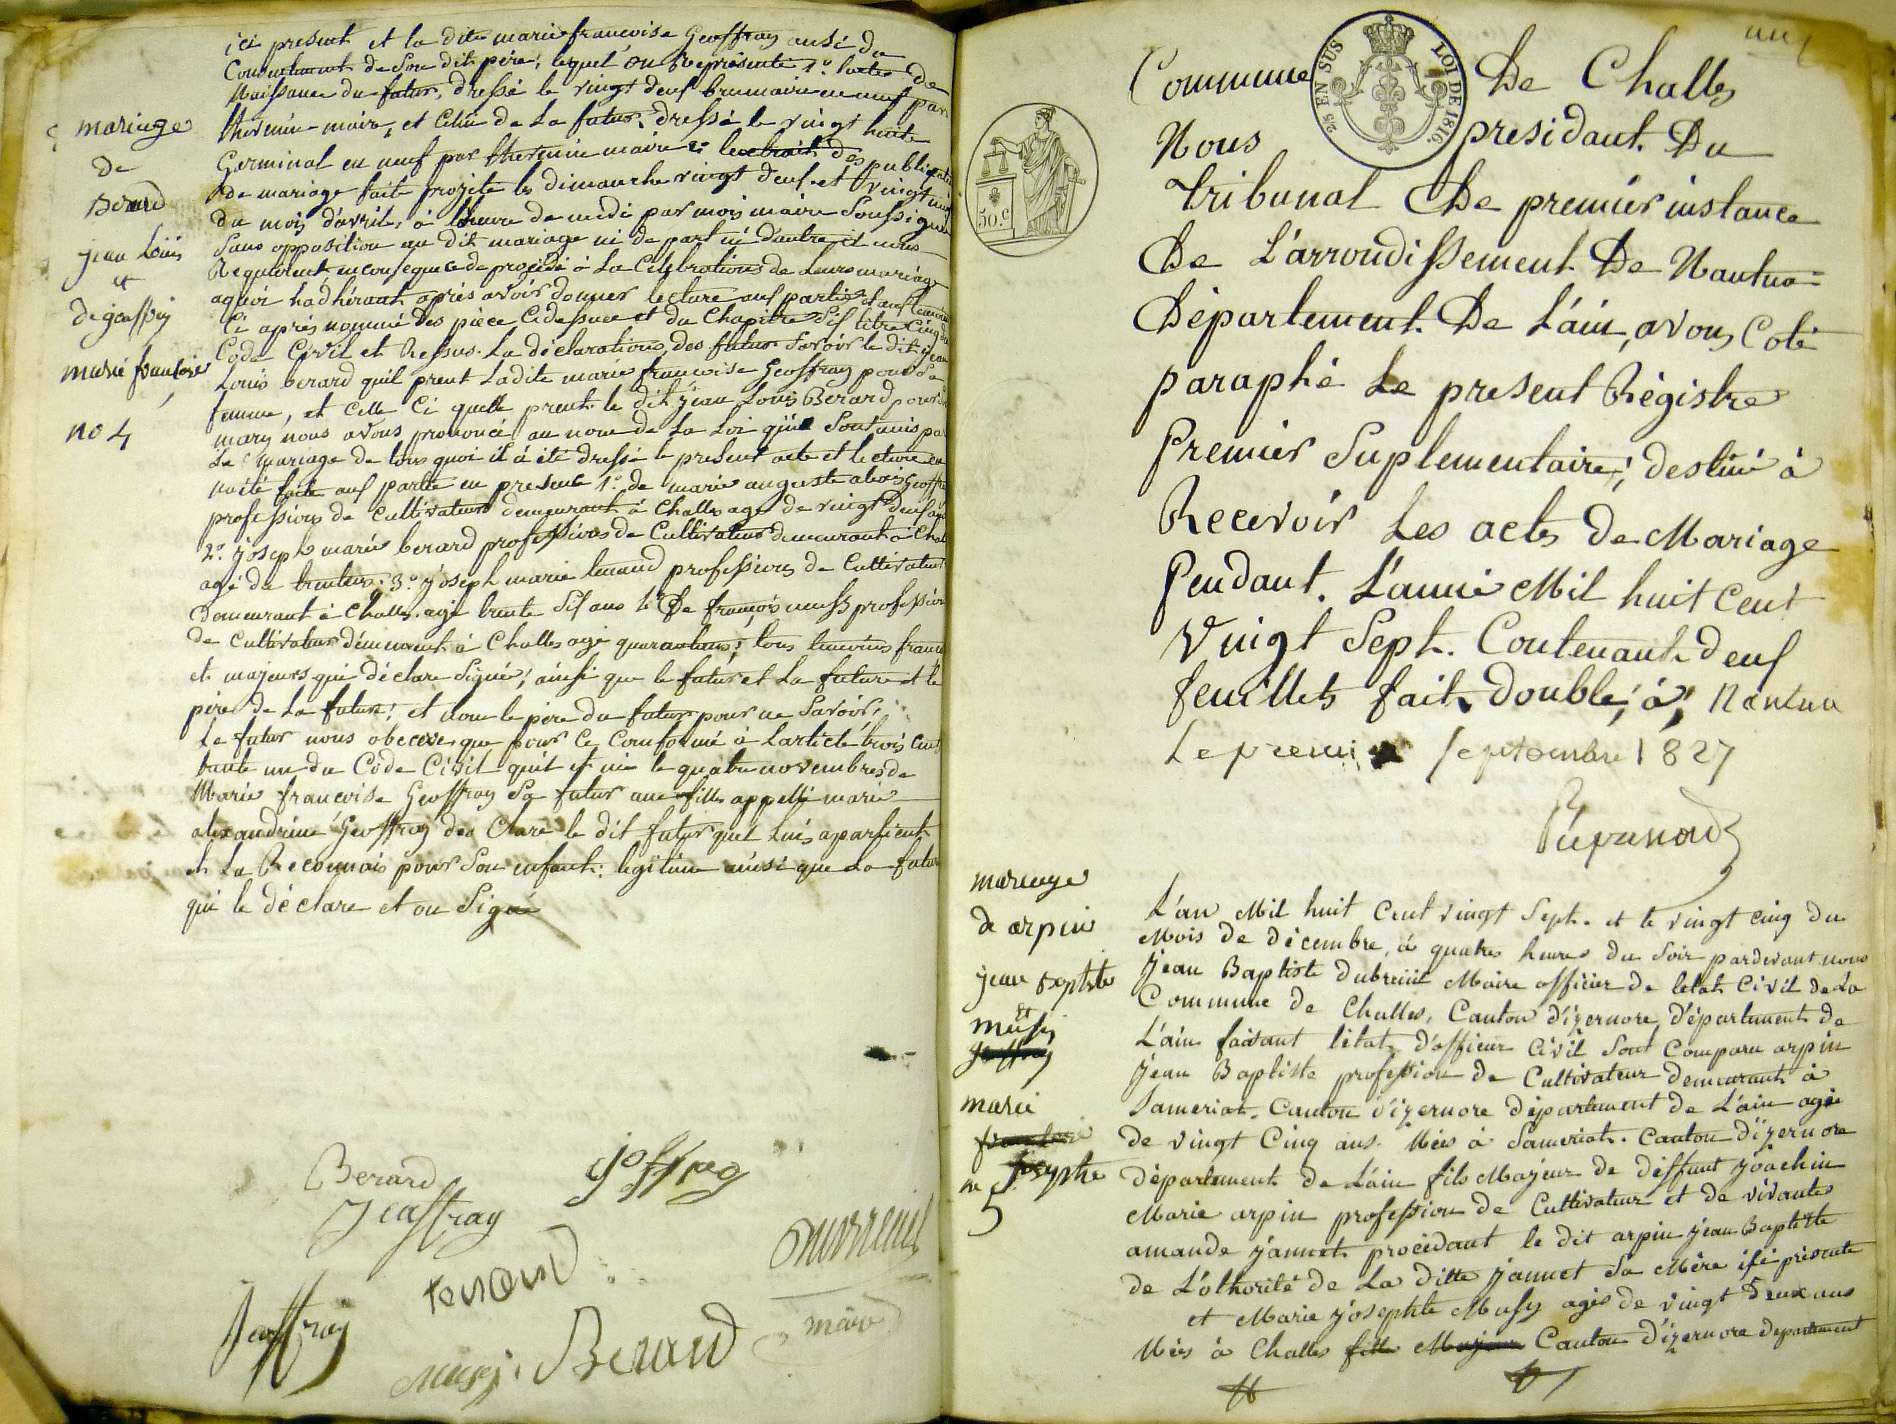 ici present et la dite marie francoise Geoffray ausi du
Consentement de Son dit père, lequel on Représente 1.º lactes de
Naissance du futur, dressé le vingt deuf brumaire an neuf par
thevenin maire, et Celui de La future dressé le vingt huit
Germinal en neuf par thevenin maire 2º lextrait des publication
de mariage faite projete les dimanche vingt deuf et vingt neuf
du mois d'avril, à l'heure de midi par mois maire Soussigné
Sans opposition au dit mariage ni de part ni d'autre, et nous
Requierent en conséquence de procédé à La Celebrations de Leurs mariage
aquoi hadhérant après avoir donner lecture auf parties et auf temoins
Ci après nommé des pièce Cidessuce et du Chapitre Sif titre Cinq du
Code Civil et Ressus La déclarations des futur Savoir le dit jean
Louis berard quil prent Ladite marie francoise Geoffray pour Sa
femme, et Celle Ci quelle prent le dit jean Louis Berard pour
mary nous avons prononcé au nom de La Loi quil Sont unis par
Le mariage de tous quoi il à été dressé le présent acte et lecture en
naété faite auf partie en presence 1.º de marie auguste alois Geoffray
professions de Cultivateur demeurant à Challes age de vingt deuf ans
2.º joseph marie berard professions de Cultivateur demeurant à Challes
agé de trentun; 3.º joseph marie tenand professions de Cultivateur
demeurant à Challes agé trente Sif ans 4º De françois professions
de Cultivateur démeurent à Challes agé quarantans; tous temoins francois
et majeurs qui déclare Signé; ainsi que le futur et La future et le
père de La future; et non le père du futur pour ne Savoir,
Le futur nous observe que pour Ce Conformé à Larticle trois Cent
trante un du Code Civil quil et né le quatre novembre de
Marie francoise Geoffray Sa futur une fille appellé marie
alexandrine Geoffray déa Clare le dit futur quel Luis apartient
et La Reconnais pour Son enfant legitime ainsi que La future
qui le déclare et on Signé
mariage
de
Berard
jean Loüis
et
de geoffray
marie francoise
no 4
Berard
Joffrey
Jeaffray
tenand
Jeoffray
maire
musy
Berard
Commune De Challes
2/5 EN SUS
LOI DE 1816.
50.c
Nous presidant Du
Tribunal De premier instance
De L'arrondissement De Nantua
Département De L'ain, avons Coté
paraphé Le present Régistre
Premier Suplementaire; destiné à
Recevoir Les actes de Mariage
Pendant L'année Mil huit Cent
Vingt Sept. Contenant deuf
feuillets fait double, à, Nantua
Le premier Septembre 1827
mariage
de arpin
jean Bapttste
et
musy
marie
josephte
no
5
L'an Mil huit Cent vingt Sept. et le vingt cinq du
Mois de décembre, à quatre heures du Soir pardevant nous
Jean Baptiste dubreuil Maire officier de letat Civil de La
Commune de Challes, Canton d'izernore, département de
L'ain faisant l'état d'officier Civil Sont Comparu arpin
Jean Baptiste profession de Cultivateur demeurant à
Sameriat. Canton d'izernore département de L'ain agée
de vingt Cinq ans. Nées à Sameriat. Canton d'izernore
département de L'ain fils Majeur de déffunt joachin
Marie arpin profession de Cultivateur et de vivante
amande jannet procédant le dit arpin jean Baptiste
de L'othorité de La ditte jannet Sa Mère ifi présente
et Marie josephte Musy agée de vingt Deux ans
Nées à Challes fille Majeur Canton D'izernore departement